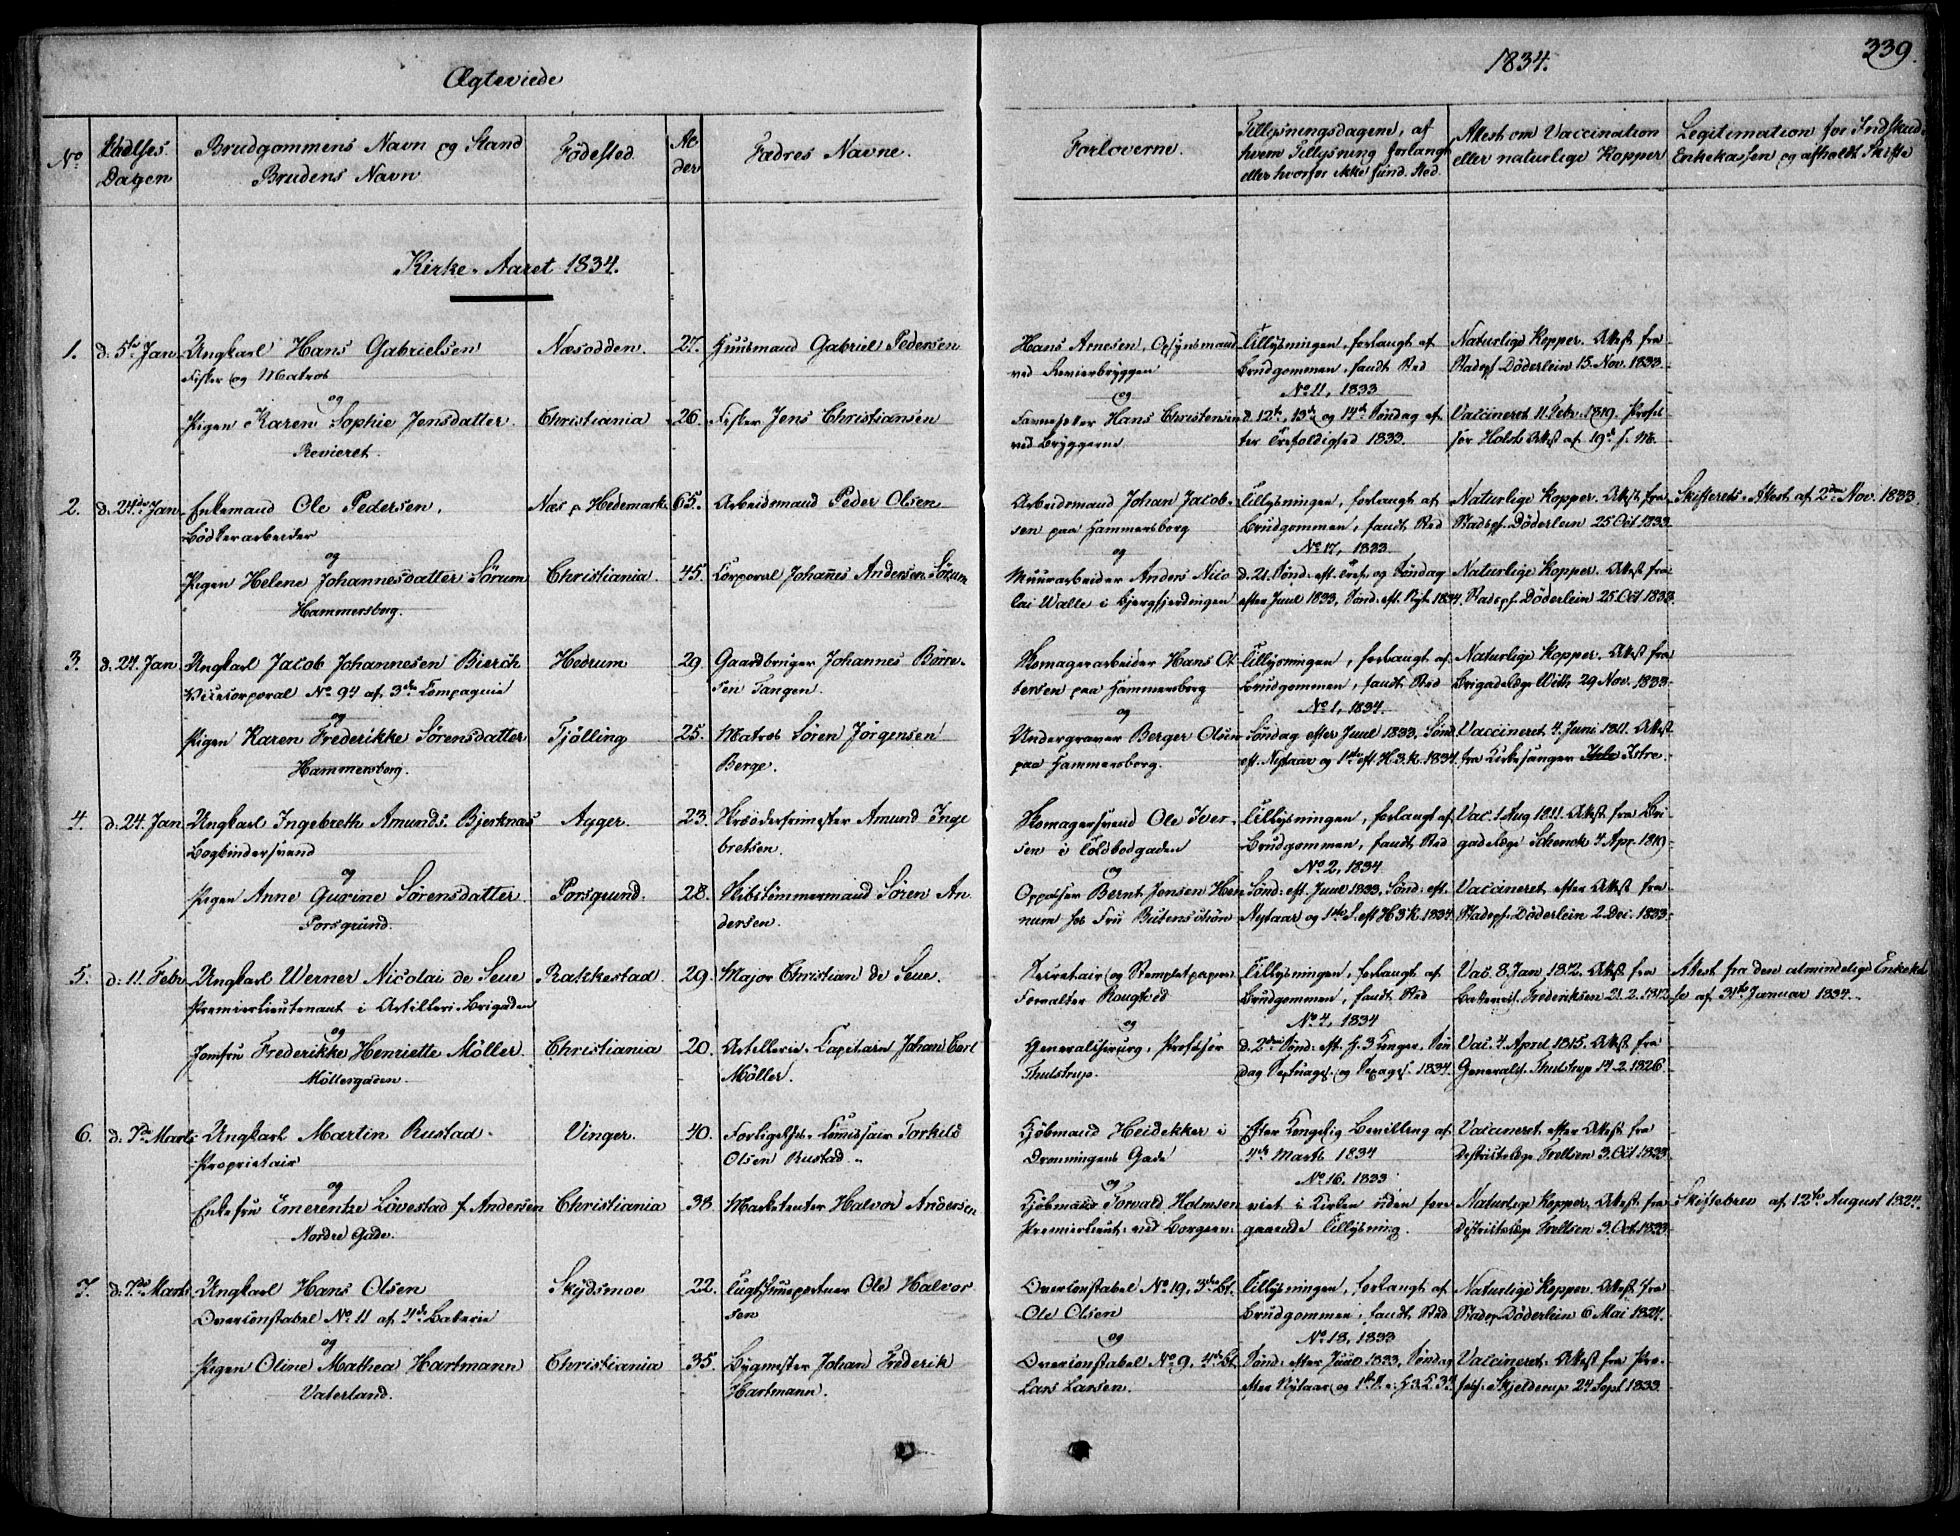 Ægteviede
1834.
339.
No
Vielses
Dagen
Brudgommens Navn og Stand
Brudens Navn
Fødested
Al
der
Fædres Navne.
Forloverne.
Tillysningsdagene, af
hvem Tillysning forlangt
eller hvorfor ikke fund. Sted
Attest om Vaccination
eller naturlige Kopper
Legitimation for Indskud i
Enkekassen og afholdt Skifte
Kirke-Aaret 1834.
1.
d. 5te Jan
Ungkarl Hans Gabrielsen
Fisker og Matros
og
Pigen Karen Sophie Jensdatter
Revieret.
Næsodden.
Christiania
27.
26.
Huusmand Gabriel Pedersen
Fisker Jens Christiansen
Hans Arnesen, Opsynsmand
ved Revierbryggen
og
Favnesetter Hans Christensen
ved Bryggerne
Tillysningen, forlangt af
Brudgommen, fandt Sted
No 11, 1833
d. 12te, 13de og 14de Søndag ef
ter Trefoldighed 1833.
Naturlige Kopper. Attest fra
Stadsph. Døderlein 15. Nov. 1833
Vaccineret 11 Febr. 1819. Profes
sor Holsts Attest af 19de s. M.
2.
d. 24de Jan
Enkemand Ole Pedersen,
Bödkerarbeider
og
Pigen Helene Johannesdatter Sörum
Hammersborg.
Næs p. Hedemark
Christiania
65.
45.
Arbeidsmand Peder Olsen
Corporal Johannes Andersen Sörum
Arbeidsmand Johan Jacob-
sen paa Hammersborg
og
Muurarbeider Anders Nico
lai Walle i Bjergfjerdingen
Tillysningen, forlangt af
Brudgommen, fandt Sted
No 17, 1833
d. 21. Sønd. eft. Tref. og Søndag
efter Juul 1833, Sønd. eft. Nyt. 1834.
Naturlige Kopper. Attest fra
Stadsph. Døderlein 25 Oct 1833
Naturlige Kopper. Attest fra
Stadsph. Døderlein 25 Oct 1833.
Skifterets Attest af 2den Nov. 1833
3.
d. 24. Jan
Ungkarl Jacob Johannesen Bierch
Vicecorporal No 94 af 3die Compagnie
og
Pigen Karen Frederikke Sörensdatter
Hammersborg.
Hedrum
Tjölling
29
25.
Gaardbruger Johannes Börre-
sen Tangen.
Matros Sören Jörgensen
Berge.
Skomagerarbeider Hans Ot
tersen paa Hammersborg
og
Undergraver Berger Olsen
paa Hammersborg.
Tillysningen, forlangt af
Brudgommen, fandt Sted
No 1, 1834.
Søndag efter Juul 1833. Sønd.
eft. Nytaar og 1ste eft. H.3.K. 1834.
Naturlige Kopper. Attest fra
Brigadelæge With 29 Nov. 1833
Vaccineret 4. Juni 1811. Attest
fra Kirkesanger Istre.
4.
d. 24. Jan
Ungkarl Ingebreth Amunds. Bjerknæs
Bogbindersvend
og
Pigen Anne Gurine Sörensdatter
Porsgrund.
Agger.
Porsgrund.
23.
28.
Amund Inge
bretsen.
Skibstömmermand Sören An
dersen.
Skomagersvend Ole Iver-
sen i Toldbodgaden
og
Oppasser Bernt Jensen Hen
num hos
Tillysningen, forlangt af
Brudgommen, fandt Sted
No 2, 1834
Sønd. eft. Juul 1833, Sønd. eft.
Nytaar og 1ste S. eft H3K. 1834.
Vac. 1 Aug 1811. Attest fra Bri
gadelæge Schenck 4 Apr. 1819
Vaccineret efter Attest fra
Stadsph. Döderlein 2. Dec. 1833
5.
d. 11. Febr
Ungkarl Werner Nicolai de Seue
Premierlieutenant i Artilleri-Brigaden
og
Jomfru Frederikke Henriette Möller.
Möllergaden.
Rakkestad.
Christiania
29.
20.
Major Christian de Seue.
Artillerie-Capitain Johan Carl
Möller.
Secretair og Stempletpapirs
Forvalter Rougtved
og
Generalchirurg, Professor
Thulstrup.
Tillysningen, forlangt af
Brudgommen, fandt Sted
No 4, 1834
d. 2den Sønd. eft. H. 3 Konger. Søn
dag Septuages. og Sexages. 1834
Vac. 8. Jan 1812. Attest fra
Frederiksen 21. 2. 1812
Vac. 4. April 1815. Attest fra
Generalch. Thulstrup 14. 2. 1826.
Attest fra den almindelige Enkekas
se af 31te Januar 1834.
6.
d. 7de Marts
Ungkarl Martin Rustad.
Proprietair
og
Enkefru Emerentze Lövestad f. Andersen
Nordre Gade.
Vinger.
Christiania
40.
38.
Forligelses-Commissair Torkild
Olsen Rustad.
Marketenter Halvor Andersen
Kjöbmand Heidekker i
Dronningens Gade
og
Kjöbmand Torvald Holmsen
Premierlieut. ved Borgeren
Efter Kongelig Bevilling af
4de Marts 1834
No 16, 1833
viet i Kirken uden fore
gaaende Tillysning.
Vaccineret, efter Attest fra
Districtslæge Trellsen 3. Oct 1833
Naturlige Kopper, Attest fra
Districtslæge Trellsen 3. Oct 1833
Skiftebrev af 12te August 1824.
7.
d. 7de Marts
Ungkarl Hans Olsen
Overconstabel No 11 af 4de Batterie
og
Pigen Oline Mathea Hartmann
Vaterland.
Skydsmoe
Christiania
22.
35.
Tugthuusportner Ole Halvor
sen
Bygmester Johan Frederik
Hartmann.
Overconstabel No 19, 3die Bt.
Ole Olsen
og
Overconstabel No 9, 4de Bt.
Lars Larsen.
Tillysningen, forlangt af
Brudgommen, fandt Sted
No 18, 1833
Sønd. efter Juul 1833, Søndag
efter Nytaar og 1ste S. e. H 3 K 34
Naturlige Kopper. Attest fra
Stadsph. Döderlein 6 Mai 1824.
Vaccineret. Attest fra Pro-
fess. Skjelderup 24 Sept 1833